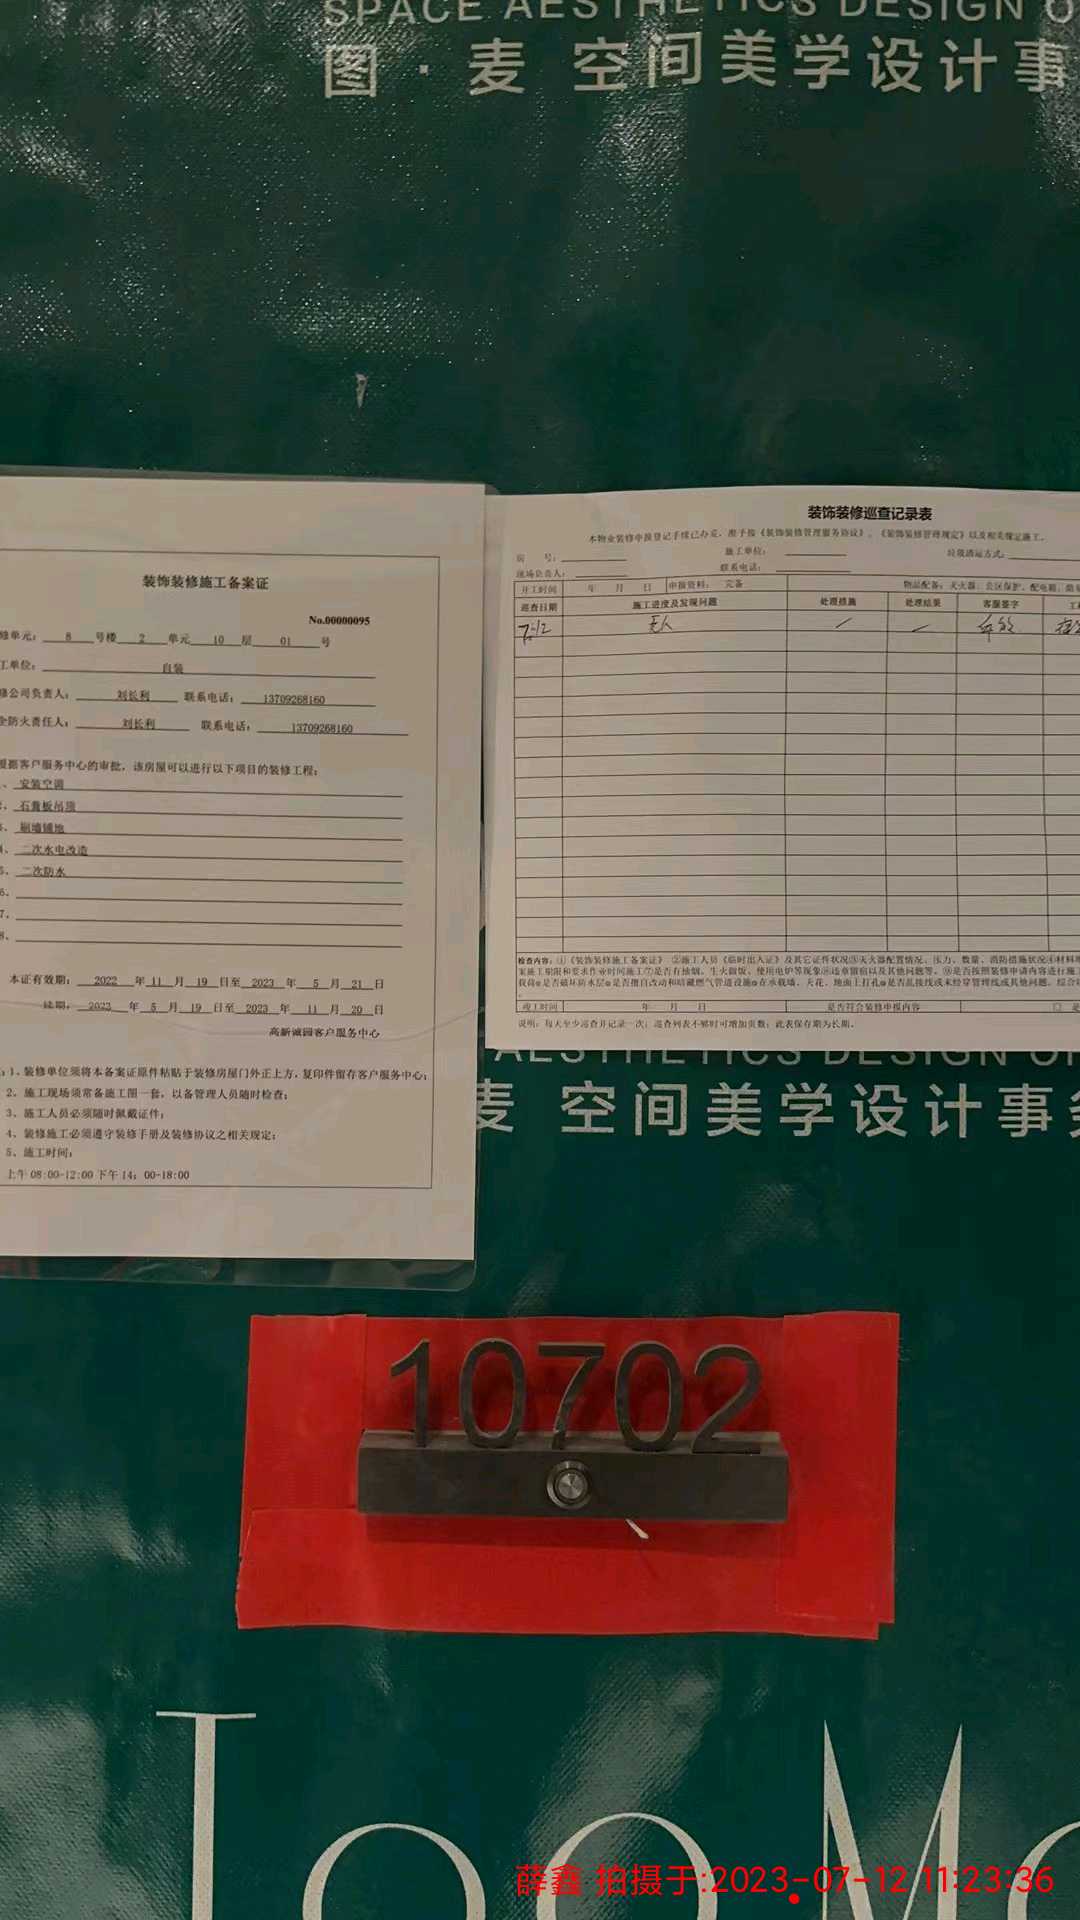 SPACE AESTHETICS DESIGN O
图·麦 空间美学设计事
装饰装修施工备案证
No.00000095
修单元: 8 号楼 2 单元 10 层 01 号
工单位: 自装
修公司负责人: 刘长利 联系电话: 13709268160
全防火责任人: 刘长利 联系电话: 13709268160
根据客户服务中心的审批，该房屋可以进行以下项目的装修工程:
、安装空调
、石膏板吊顶
、刷墙铺地
、二次水电改造
5、二次防水
6、
7、
8、
本证有效期: 2022 年 11 月 19 日至 2023 年 5 月 21 日
延期: 2023 年 5 月 19 日至 2023 年 11 月 20 日
高新诚园客户服务中心
:1、装修单位须将本备案证原件粘贴于装修房屋门外正上方，复印件留存客户服务中心;
2、施工现场须常备施工图一套，以备管理人员随时检查;
3、施工人员必须随时佩戴证件;
4、装修施工必须遵守装修手册及装修协议之相关规定;
5、施工时间:
上午 08:00-12:00 下午 14: 00-18:00
装饰装修巡查记录表
本物业装修申报登记手续已办妥，准予按《装饰装修管理服务协议》、《装饰装修管理规定》以及相关规定施工。
房 号: 施工单位: 垃圾清运方式:
现场负责人: 联系电话:
开工时间 年 月 日 申报资料: 完备 物品配备: 灭火器、公区保护、配电箱、
巡查日期 施工进度及发现问题 处理措施 处理结果 客服签字 工
7-12 无人
检查内容:①《装饰装修施工备案证》②施工人员《临时出入证》及其它证件状况③灭火器配置情况、压力、数量、消防措施状况④材料
案施工期限和要求作业时间施工⑦是否有抽烟、生火做饭、使用电炉等现象⑧违章留宿以及其他问题等。⑨是否按照装修申请内容进行施工
是否破坏防水层 是否擅自改动和暗藏燃气管道设施 在承载墙、天花、地面上打孔 是否乱接线或未经穿管埋线或其他问题。
竣工时间 年 月 日 是否符合装修申报内容 □ 是
说明: 每天至少巡查并记录一次; 巡查列表不够时可增加页数; 此表保存期为长期。
AESTHETICS DESIGN OF
麦 空间美学设计事务
10702
TooMo
薛鑫 拍摄于:2023-07-12 11:23:36